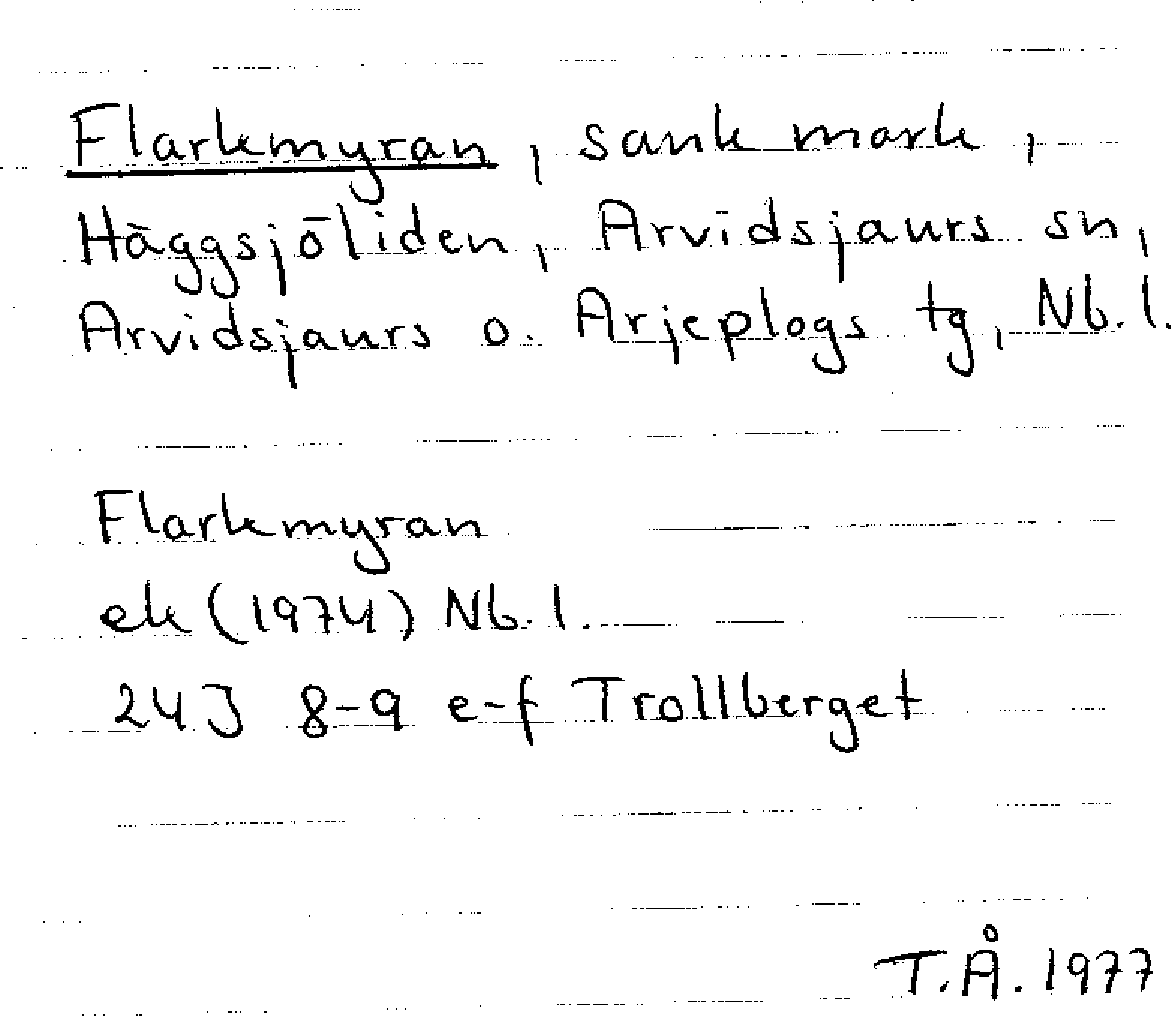 Flarkmyran, sank mark,
Häggsjöliden, Arvidsjaurs sn,
Arvidsjaurs o. Arjeplogs tg, Nb. l.
Flarkmyran
ek (1974) Nb. l.
24J 8-9 e-f Trollberget
T.Å. 1977